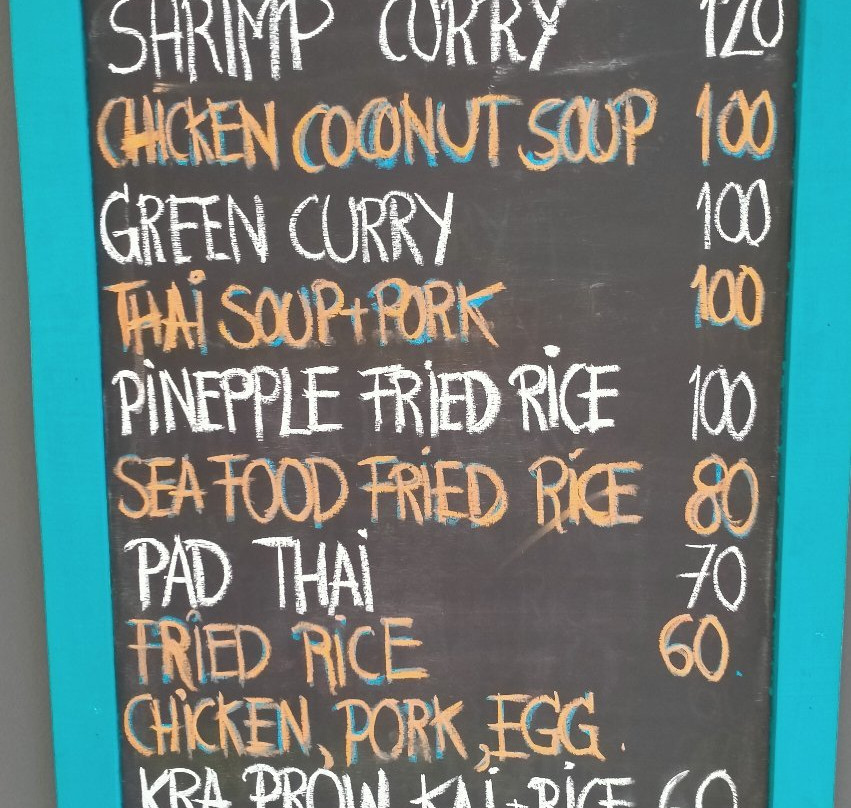 SHRIMP CURRY 120
CHICKEN COCONUT SOUP 100
GREEN CURRY 100
THAi SOUP+PORK 100
PiNEPPLE FRiED RiCE 100
SEA FOOD FRiED RiCE 80
PAD THAi 70
FRiED RiCE 60.
CHiCKEN, PORK, EGG.
KRA PROW KAi+RiCE 60